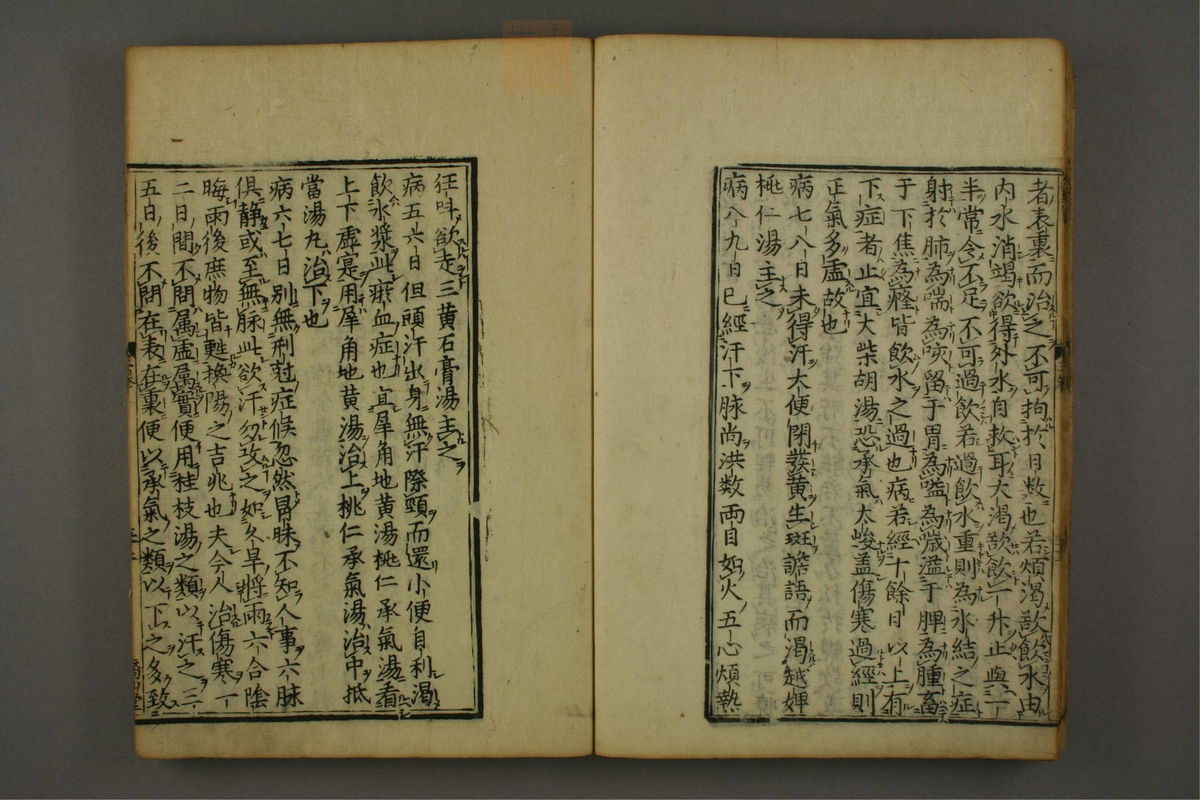 者表裏而治之不可拘於日数也若煩渴欲飲水由
内水消竭欲得外水自救耳大渴欲飲一升止與一
半常令不足不可過飲若過飲水重則為水結之症
射於肺為喘為咳留于胃為噎為噦溢于脾為腫畜
于下焦為癃皆飲水之過也病若經十餘日以上有
下症者止宜大柴胡湯恐承氣太峻盖傷寒過經則
正氣多虚故也
病七八日未得汗大便閉發黄生斑譫語而渴越婢
桃仁湯主之
病八九日已經汗下脉尚洪数両目如火五心煩熱
狂叫欲走三黄石膏湯主之
病五六日但頭汗出身無汗際頸而還小便自利渴
飲水漿此瘀血症也宜犀角地黄湯桃仁承氣湯看
上下虚实用犀角地黄湯治上桃仁承氣湯治中抵
當湯丸治下也
病六七日別無刑尅症候忽然昏昧不知人事六脉
俱静或至無脉此欲汗勿攻之如久旱將雨六合陰
晦雨後庶物皆甦換陽之吉兆也夫今人治傷寒一
二日間不問属虚属實便用桂枝湯之類以汗之三
五日後不問在表在裏便以承氣之類以下之多致